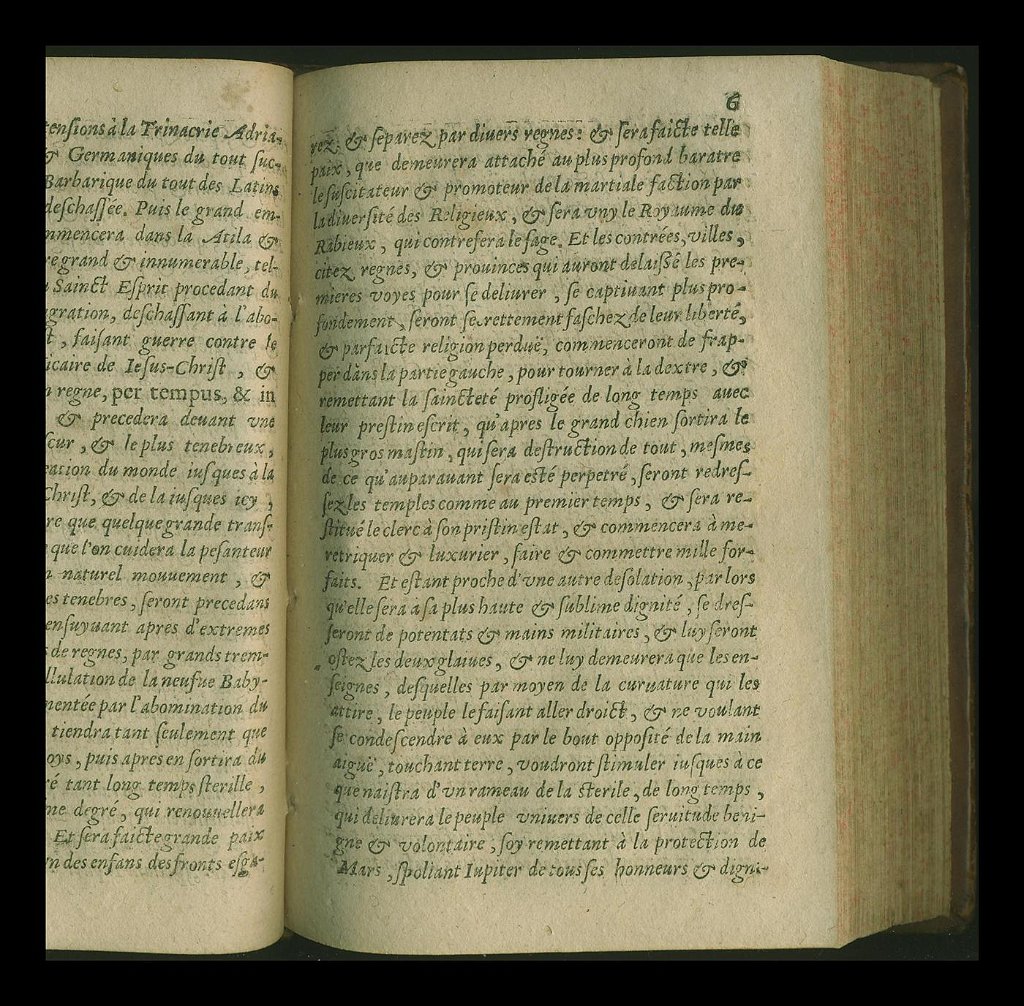 tensions à la Trinacrie Adria-
& Germaniques du tout suc-
Barbarique du tout des Latins
deschassée. Puis le grand em-
mmencera dans la Atila &
re grand & innumerable, tel-
Sainct Esprit procedant du
gration, deschassant à l'abo-
t, faisant guerre contre le
icaire de Iesus-Christ, &
n regne, per tempus, & in
& precedera deuant vne
scur, & le plus tenebreux,
eation du monde iusques à la
Christ, & de la iusques icy,
re que quelque grande trans-
que l'on cuidera la pesanteur
n naturel mouuement, &
es tenebres, seront precedans
ensuyuant apres d'extremes
s de regnes, par grands trem-
llulation de la neufue Baby-
mentée par l'abomination du
tiendra tant seulement que
oys, puis apres en sortira du
ré tant long temps sterille,
me degré, qui renouuellera
Et sera faicte grande paix
n des enfans des fronts esga-
6
rez, & separez par diuers regnes: & sera faicte telle
paix, que demeurera attaché au plus profond baratre
le suscitateur & promoteur de la martiale faction par
la diuersité des Religieux, & sera vny le Royaume du
Rabieux, qui contrefera le sage. Et les contrées, villes,
citez regnes, & prouinces qui auront delaissé les pre-
mieres voyes pour se deliurer, se captiuant plus pro-
fondement, seront secrettement faschez de leur liberté,
& parfaicte religion perduë, commenceront de frap-
per dàns la partie gauche, pour tourner à la dextre, &
remettant la saincteté profligée de long temps auec
leur prestin escrit, qu'apres le grand chien sortira le
plus gros mastin, qui sera destruction de tout, mesmes
de ce qu'auparauant sera esté perpetré, seront redres-
sez les temples comme au premier temps, & sera re-
stitué le clerc à son pristin estat, & commencera à me-
retriquer & luxurier, faire & commettre mille for-
faits. Et estant proche d'vne autre desolation, par lors
qu'elle sera à sa plus haute & sublime dignité, se dres-
seront de potentats & mains militaires, & luy seront
ostez les deux glaiues, & ne luy demeurera que les en-
seignes, desquelles par moyen de la curuature qui les
attire, le peuple le faisant aller droict, & ne voulant
se condescendre à eux par le bout opposité de la main
aiguë, touchant terre, voudront stimuler iusques à ce
que naistra d'vn rameau de la sterile, de long temps,
qui deliurera le peuple vniuers de celle seruitude beni-
gne & volontaire, soy remettant à la protection de
Mars, spoliant Iupiter de tous ses honneurs & digni-